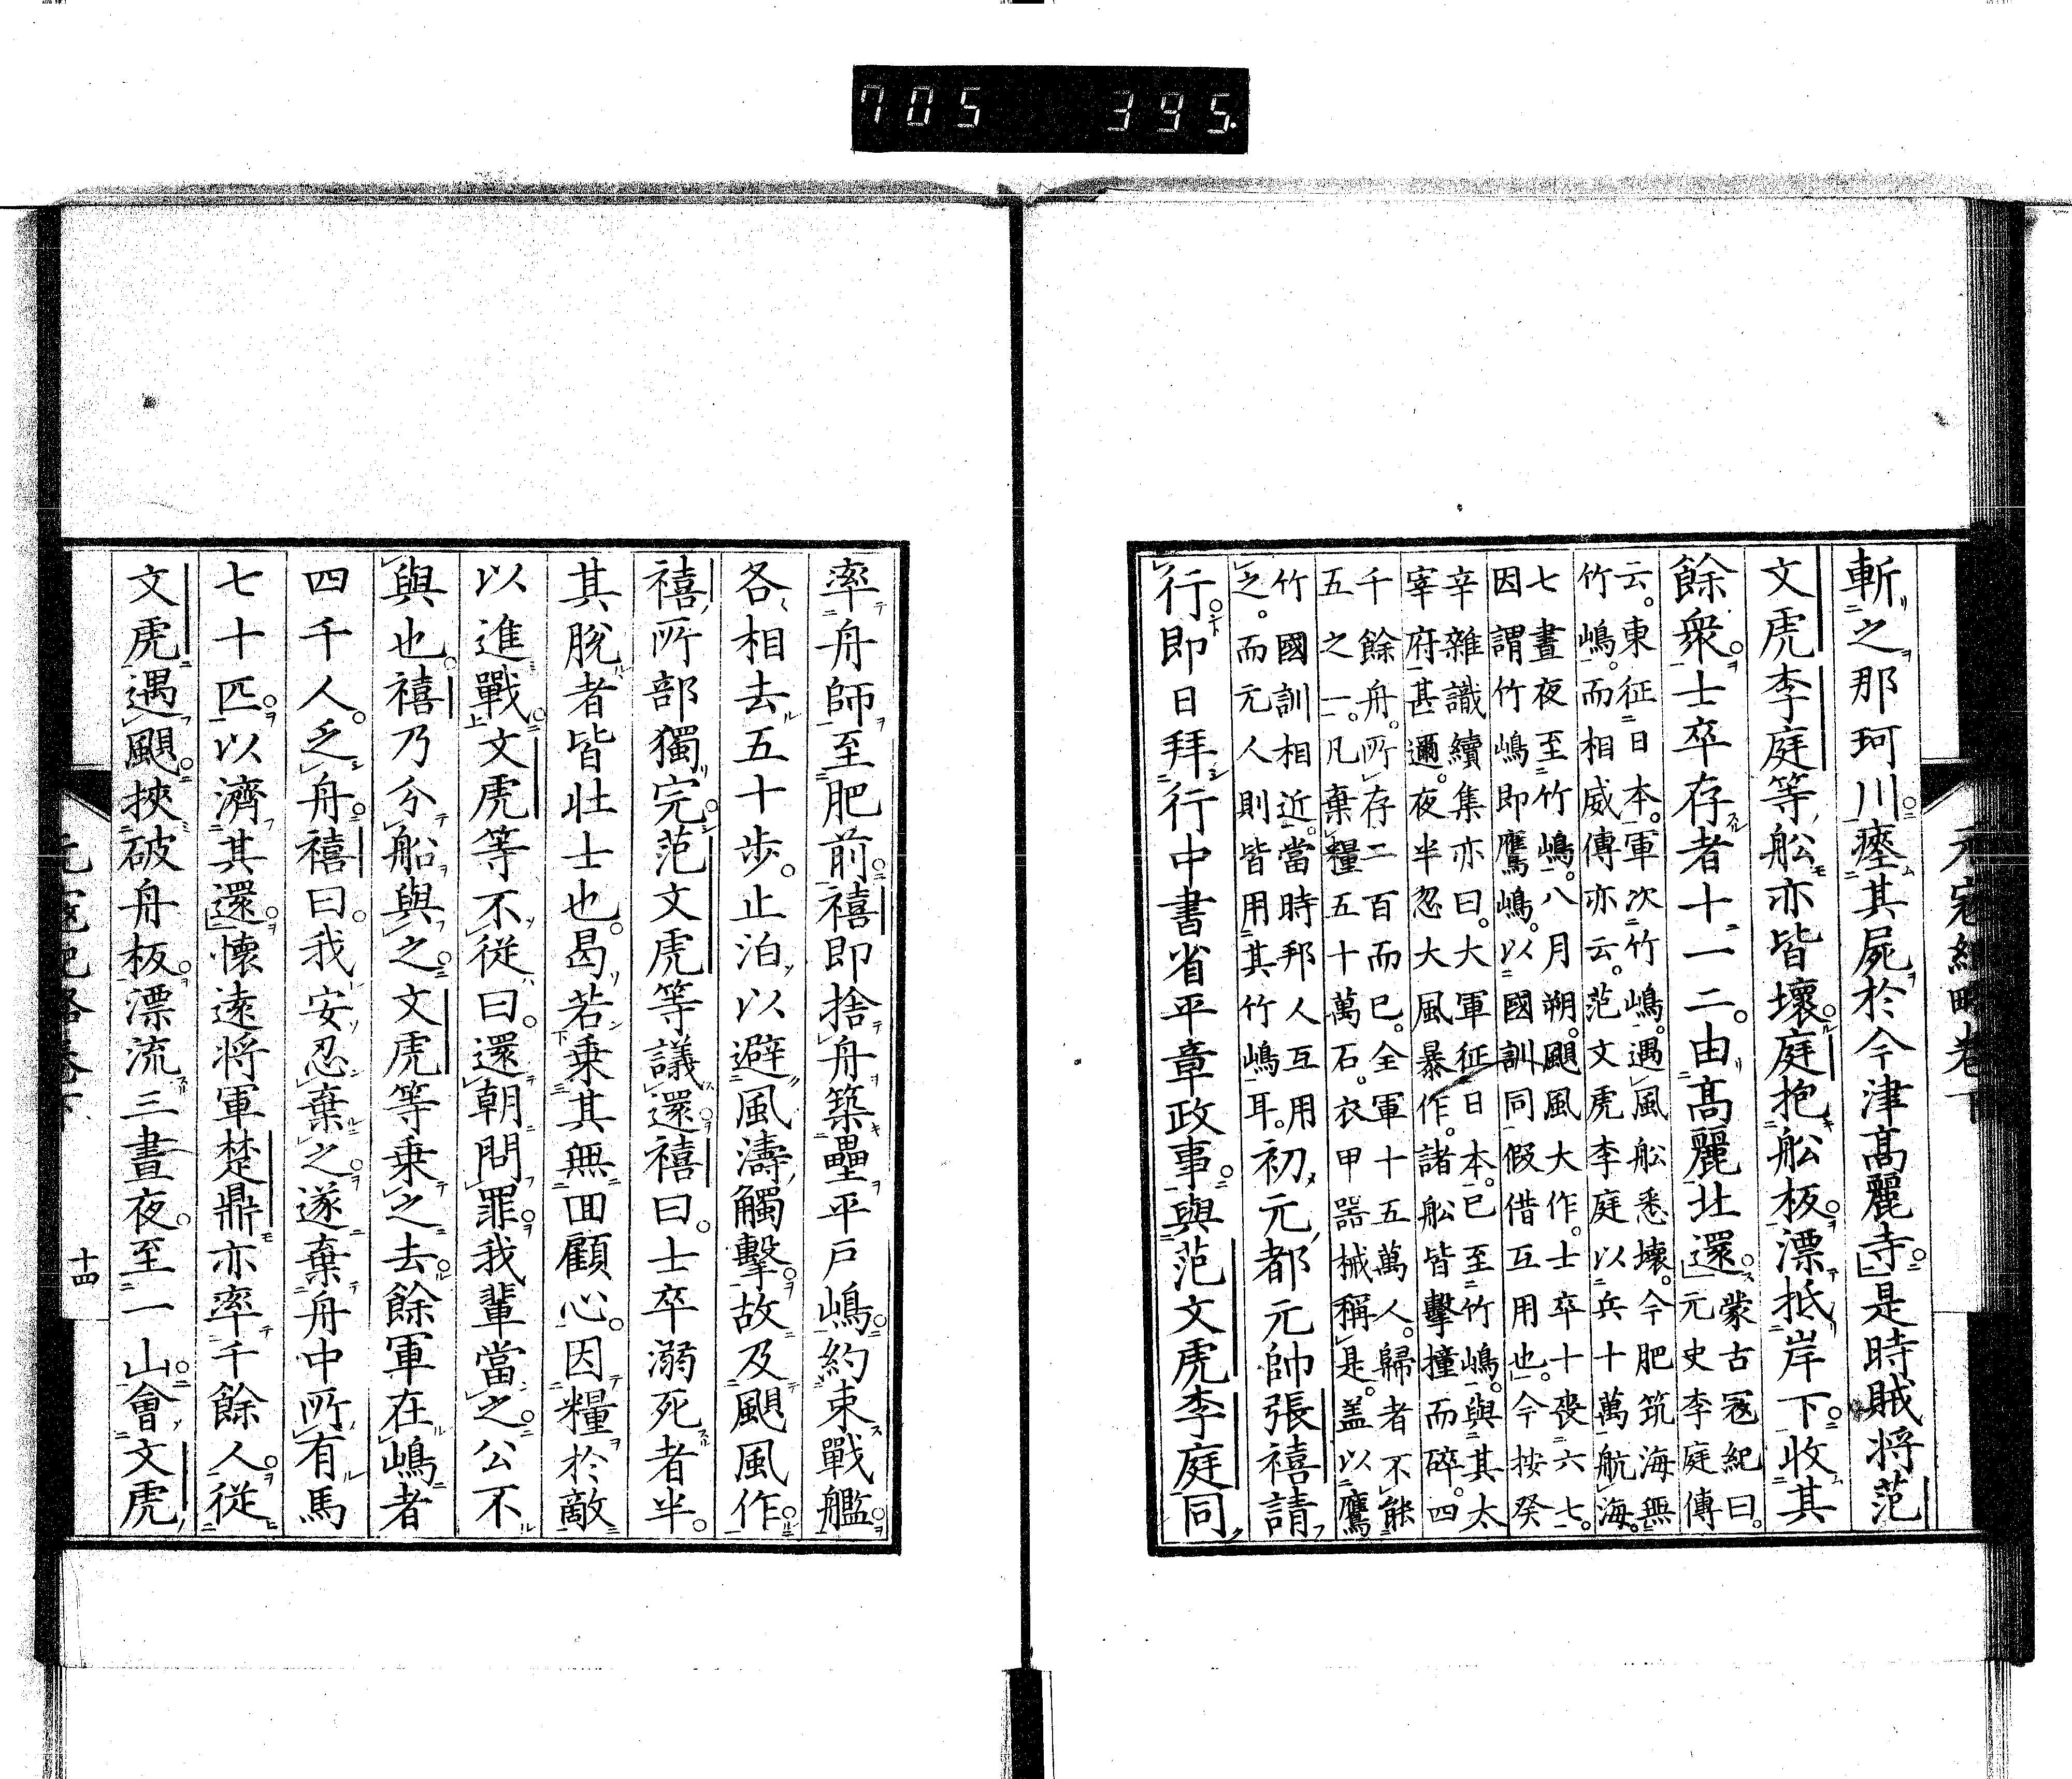 元寇紀略卷下
斬之那珂川。瘞其屍於今津高麗寺。是時賊将范
文虎李庭等舩亦皆壞。庭抱舩板。漂抵岸下。収其
餘衆。士卒存者十一二。由高麗北還。
蒙古寇紀曰。
元史李庭傳
云。東征日本。軍次竹嶋。遇風舩悉壞。今肥筑海無
竹嶋。而相威傳亦云。范文虎李庭以兵十萬航海。
七晝夜至竹嶋。八月朔。颶風大作。士卒十喪六七。
因謂竹嶋即鷹嶋。以國訓同假借互用也。今按癸
辛雜識續集亦曰。大軍征日本。已至竹嶋。與其太
宰府甚邇。夜半忽大風暴作。諸舩皆擊撞而碎。四
千餘舟。所存二百而已。全軍十五萬人。歸者不能
五之一。凡棄糧五十萬石。衣甲器械稱是。盖以鷹
竹國訓相近。當時邦人互用
之。而元人則皆用其竹嶋耳。
初元都元帥張禧請
行。即日拜行中書省平章政事。與范文虎李庭同
率舟師至肥前。禧即捨舟築壘平戸嶋。約束戰艦。
各相去五十歩。止泊以避風濤觸擊。故及颶風作。
禧所部獨完。范文虎等議還。禧曰。士卒溺死者半。
其脫者皆壯士也。曷若乗其無回顧心。因糧於敵
以進戰。文虎等不從曰。還朝問罪。我輩當之。公不
與也。禧乃分船與之。文虎等乗之去。餘軍在嶋者
四千人。乏舟。禧曰。我安忍棄之。遂棄舟中所有馬
七十匹。以濟其還。懐遠将軍楚鼎亦率千餘人。從
文虎遇颶。挾破舟板。漂流三晝夜。至一山。會文虎
十四